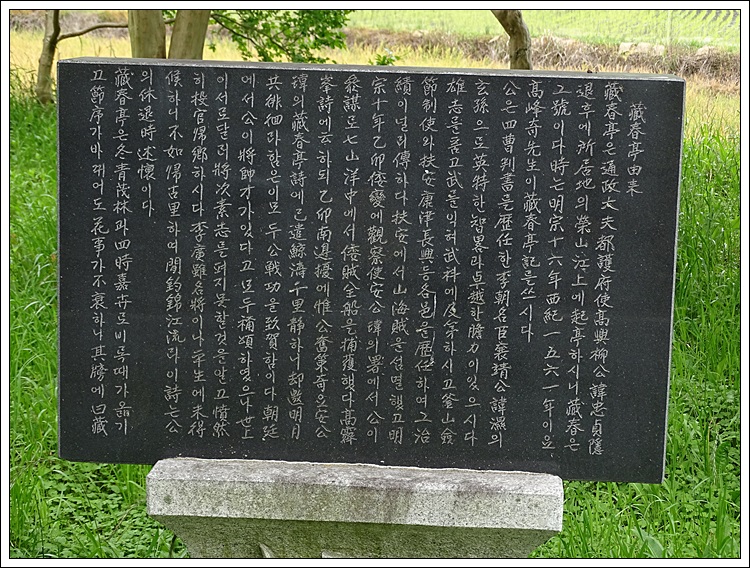 藏春亭由来
藏春亭은 通政大夫 都護府使 高興 柳公 諱 忠貞 隱
退后에 所居地의 榮山江上에 起亭하시니 藏春은
그 號이다 時는 明宗十六年 西紀一五六一年이요
高峰 奇先生이 藏春亭記를 쓰시다
公은 四曹判書를 歷任한 李朝名臣 襄靖公 諱 濕의
玄孫으로 英特한 智畧과 卓越한 膽力이 있으시다
雄志를 품고 武를 익혀 武科에 及第하시고 釜山 僉
節制使와 扶安 康津 長興 等 各邑을 歷任하여 그 治
績이 널리 傳하다 扶安에서 山海賊을 섬멸했고 明
宗十年 乙卯倭變에 觀察使 安公 瑋의 署에서 公이
參謀로 七山洋中에서 倭賊 全船을 捕獲했다 高霽
峯 詩에 云하되 乙卯南邊擾에 惟公奮策奇요 安公
瑋의 藏春亭詩에 已遣鯨濤千里靜하니 却豊明月
共徘徊라 한은 이 모두 公 戰功을 致賀함이다 朝廷
에서 公이 將帥才가 있다고 모두 稱頌하였으나 世上
이 서로 달라 將次 素志를 펴지 못한 것을 알고 憤然
히 投官 歸鄕하시다 李廣雖名將이나 平生에 未得
候하니 不如歸古里하여 閑釣錦江流라 이 詩는 公
의 休退時 述懷이다
藏春亭은 冬青茂林과 四時嘉卉로 비록 때가 옮기
고 節序가 바뀌어도 花事가 不衰하니 其勝에 曰 藏